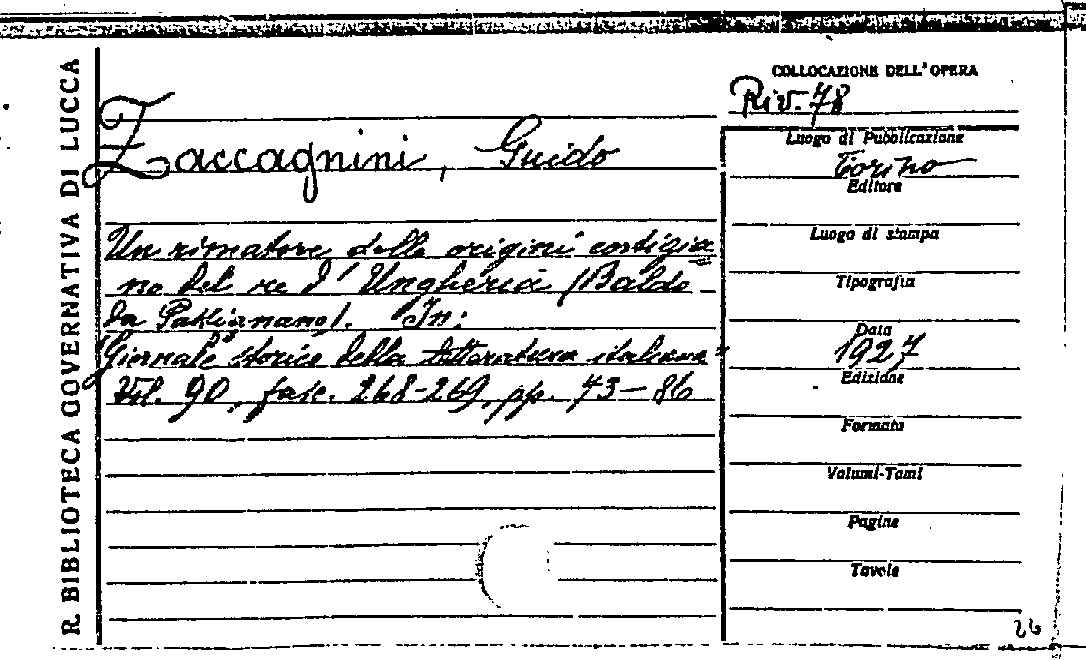 R. BIBLIOTECA GOVERNATIVA DI LUCCA
COLLOCAZIONE DELL'OPERA
Riv. 78
Zaccagnini, Guido
Un rimatore delle origini cortigia
no del re d'Ungheria (Baldo
da Passignano). In:
"Giornale storico della letteratura italiana"
Vol. 90, fasc. 268-269, pp. 73-86
Luogo di Pubblicazione
Torino
Editore
Luogo di stampa
Tipografia
Data
1927
Edizione
Formato
Volumi-Tomi
Pagine
Tavole
26